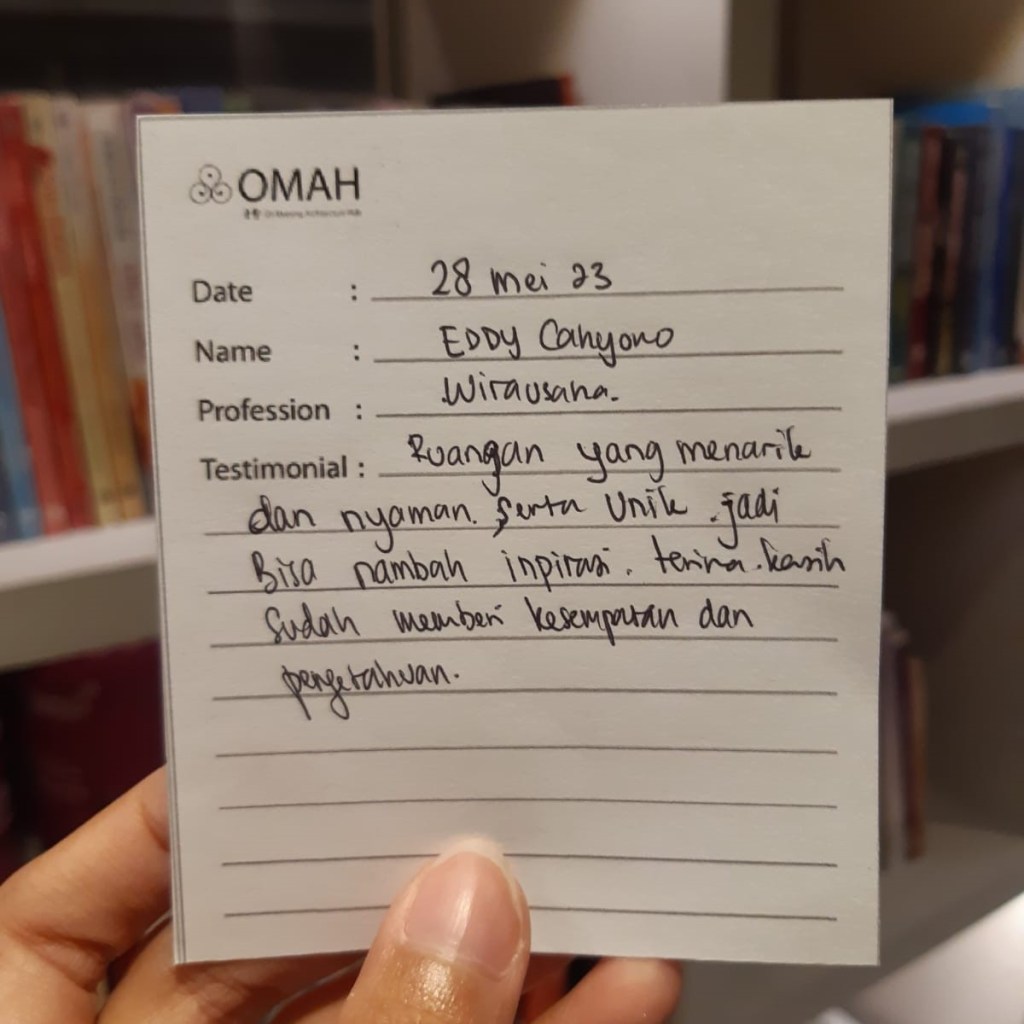 OMAH
Architecture Hub
Date : 28 mei 23
Name : EDDY Cahyono
Profession : Wirausaha.
Testimonial : Ruangan yang menarik
dan nyaman. serta Unik . jadi
Bisa nambah inpirasi. terima.kasih
Sudah memberi kesempatan dan
pengetahuan.